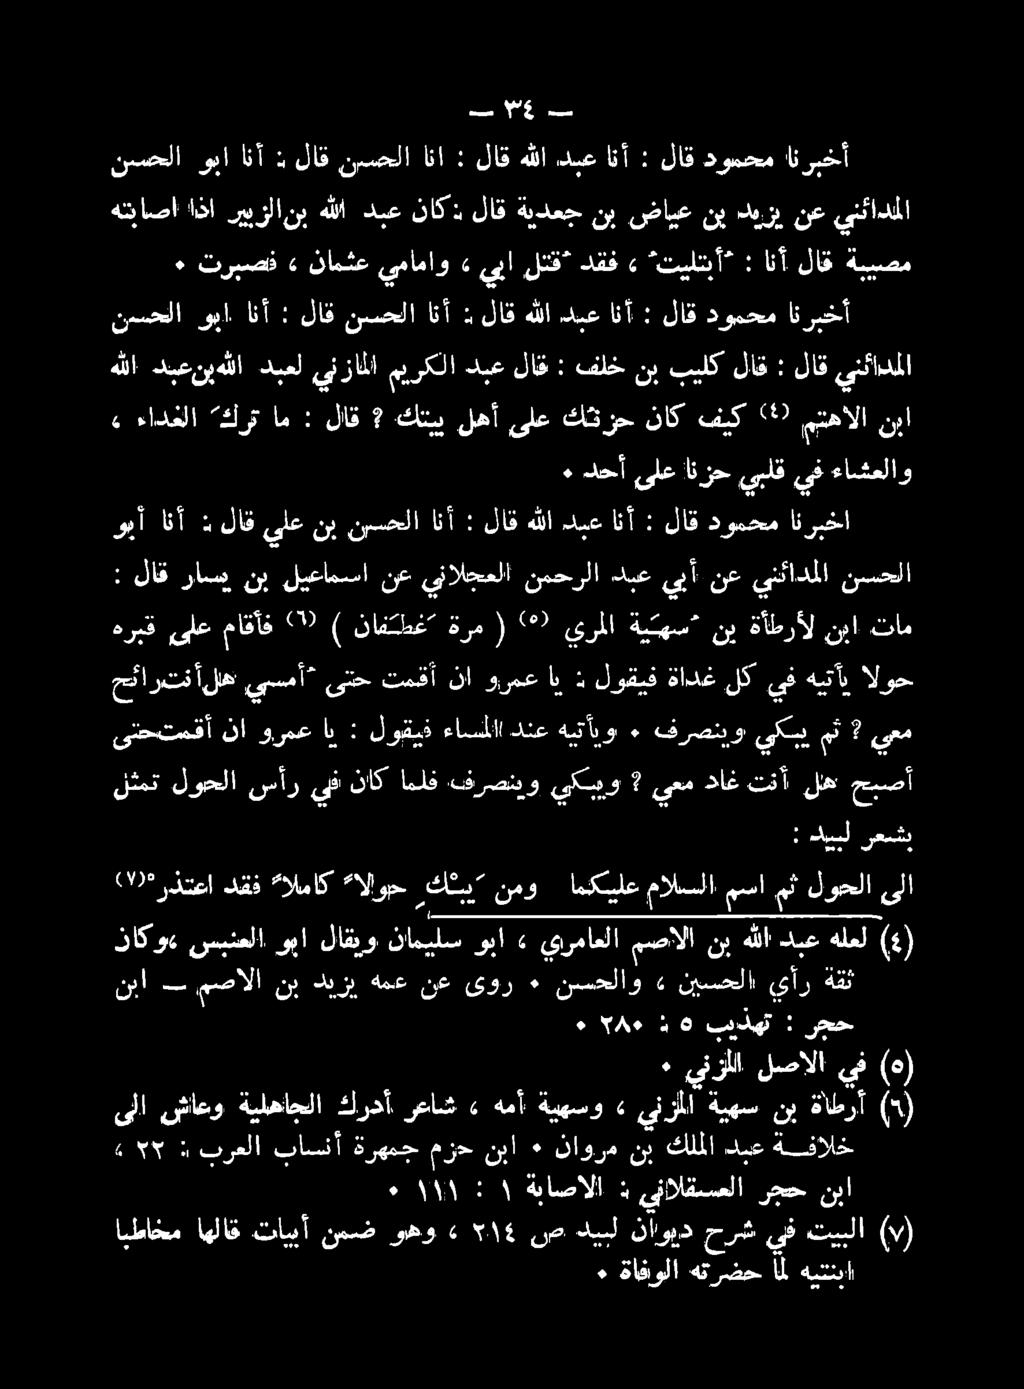 — ٣٤ —
أخبرنا محمود قال : أنا عبد الله قال : انا الحسن قال : أنا ابو الحسن
المدائني عن يزيد بن عياض بن جعدية قال : كان عبد الله بن الزبير اذا اصابته
مصيبة قال أنا : أُبتليتُ ، فقد قُتل ابي ، وامامي عثمان ، فصبرت ٠
أخبرنا محمود قال : أنا عبد الله قال : أنا الحسن قال : أنا ابو الحسن
المدائني قال : قال كليب بن خلف : قال عبد الكريم المازني لعبد الله بن عبد الله
ابن الاهتم (٤) كيف كان حزنك على أهل بيتك ? قال : ما تركَ الغداء ،
والعشاء في قلبي حزنا على أحد ٠
اخبرنا محمود قال : أنا عبد الله قال : أنا الحسن بن علي قال : أنا أبو
الحسن المدائني عن أبي عبد الرحمن العجلاني عن اسماعيل بن يسار قال :
مات ابن لأرطأة بن سُهَيّة المري (٥) ( مرة غَطَفان ) (٦) فأقام على قبره
حولا يأتيه في كل غداة فيقول : يا عمرو ان أقمت حتى أُمسي هل أنت رائح
معي ? ثم يبكي وينصرف ٠ ويأتيه عند المساء فيقول : يا عمرو ان أقمت حتى
أصبح هل أنت غاد معي ? ويبكي وينصرف فلما كان في رأس الحول تمثل
بشعر لبيد :
الى الحول ثم اسم السلام عليكما ومن يَبْكِ حولاً كاملاً فقد اعتذرْ (٧)
(٤) لعله عبد الله بن الاصم العامري ، ابو سليمان ويقال ابو العنبس ، وكان
ثقة رأي الحسين ، والحسن ٠ روى عن عمه يزيد بن الاصم — ابن
حجر : تهذيب ٥ : ٢٨٠ ٠
(٥) في الاصل المزني ٠
(٦) أرطاة بن سهية المزني ، وسهية أمه ، شاعر أدرك الجاهلية وعاش الى
خلافة عبد الملك بن مروان ٠ ابن حزم جمهرة أنساب العرب : ٢٢ ،
ابن حجر العسقلاني : الاصابة ١ : ١١١ ٠
(٧) البيت في شرح ديوان لبيد ص ٢١٤ ، وهو ضمن أبيات قالها مخاطبا
ابنتيه لما حضرته الوفاة ٠